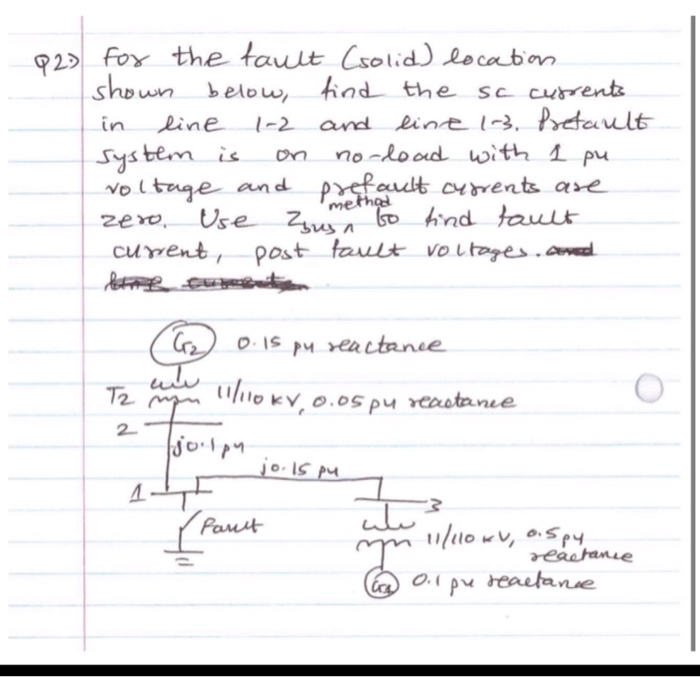 Q2) For the fault (solid) location
shown below, find the sc currents
in line 1-2 and line 1-3. Prefault
system is on no-load with 1 pu
voltage and prefault currents are
zero. Use Zbus method to find fault
current, post fault voltages.
G2 0.15 pu reactance
T2 11/110 kV, 0.05 pu reactance
2
j0.1 pu
j0.15 pu
1
3
Fault
11/110 kV, 0.5 pu
reactance
0.1 pu reactance